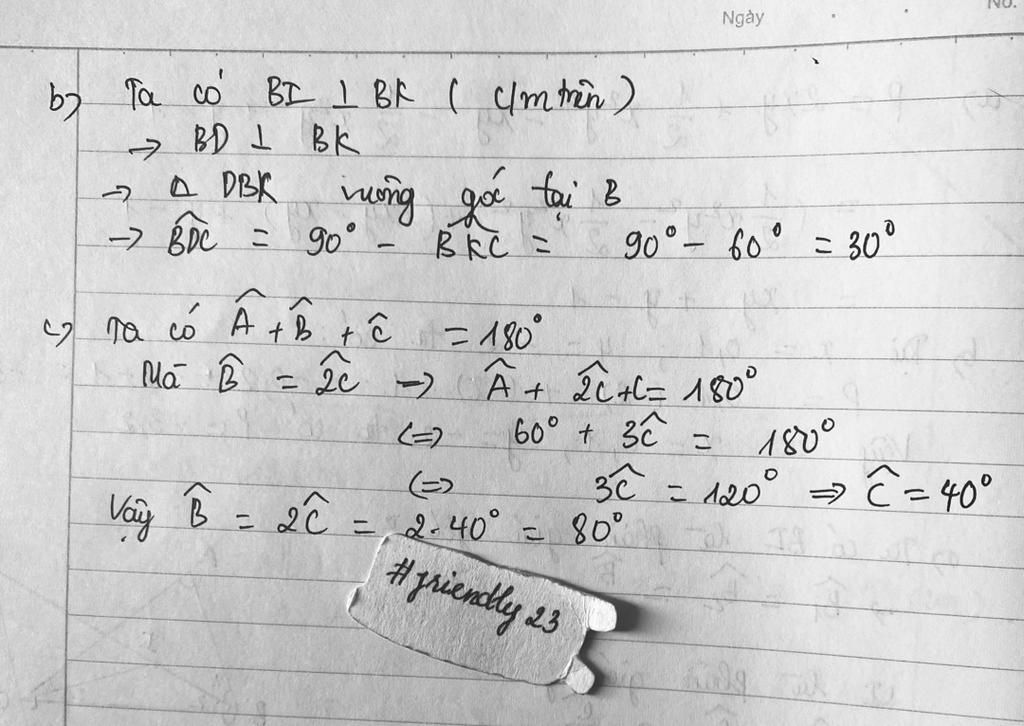 No.
Ngày
b) Ta có BI ⊥ BK ( c/m trên )
→ BD ⊥ BK
→ Δ DBK vuông góc tại B
→ \widehat{BDC} = 90° - \widehat{BKC} = 90° - 60° = 30°
c) Ta có \widehat{A} + \widehat{B} + \widehat{C} = 180°
Mà \widehat{B} = \widehat{2C} → \widehat{A} + \widehat{2C} + C = 180°
<=> 60° + 3\widehat{C} = 180°
<=> 3\widehat{C} = 120° => \widehat{C} = 40°
Vậy \widehat{B} = 2\widehat{C} = 2.40° = 80°
#friendly 23